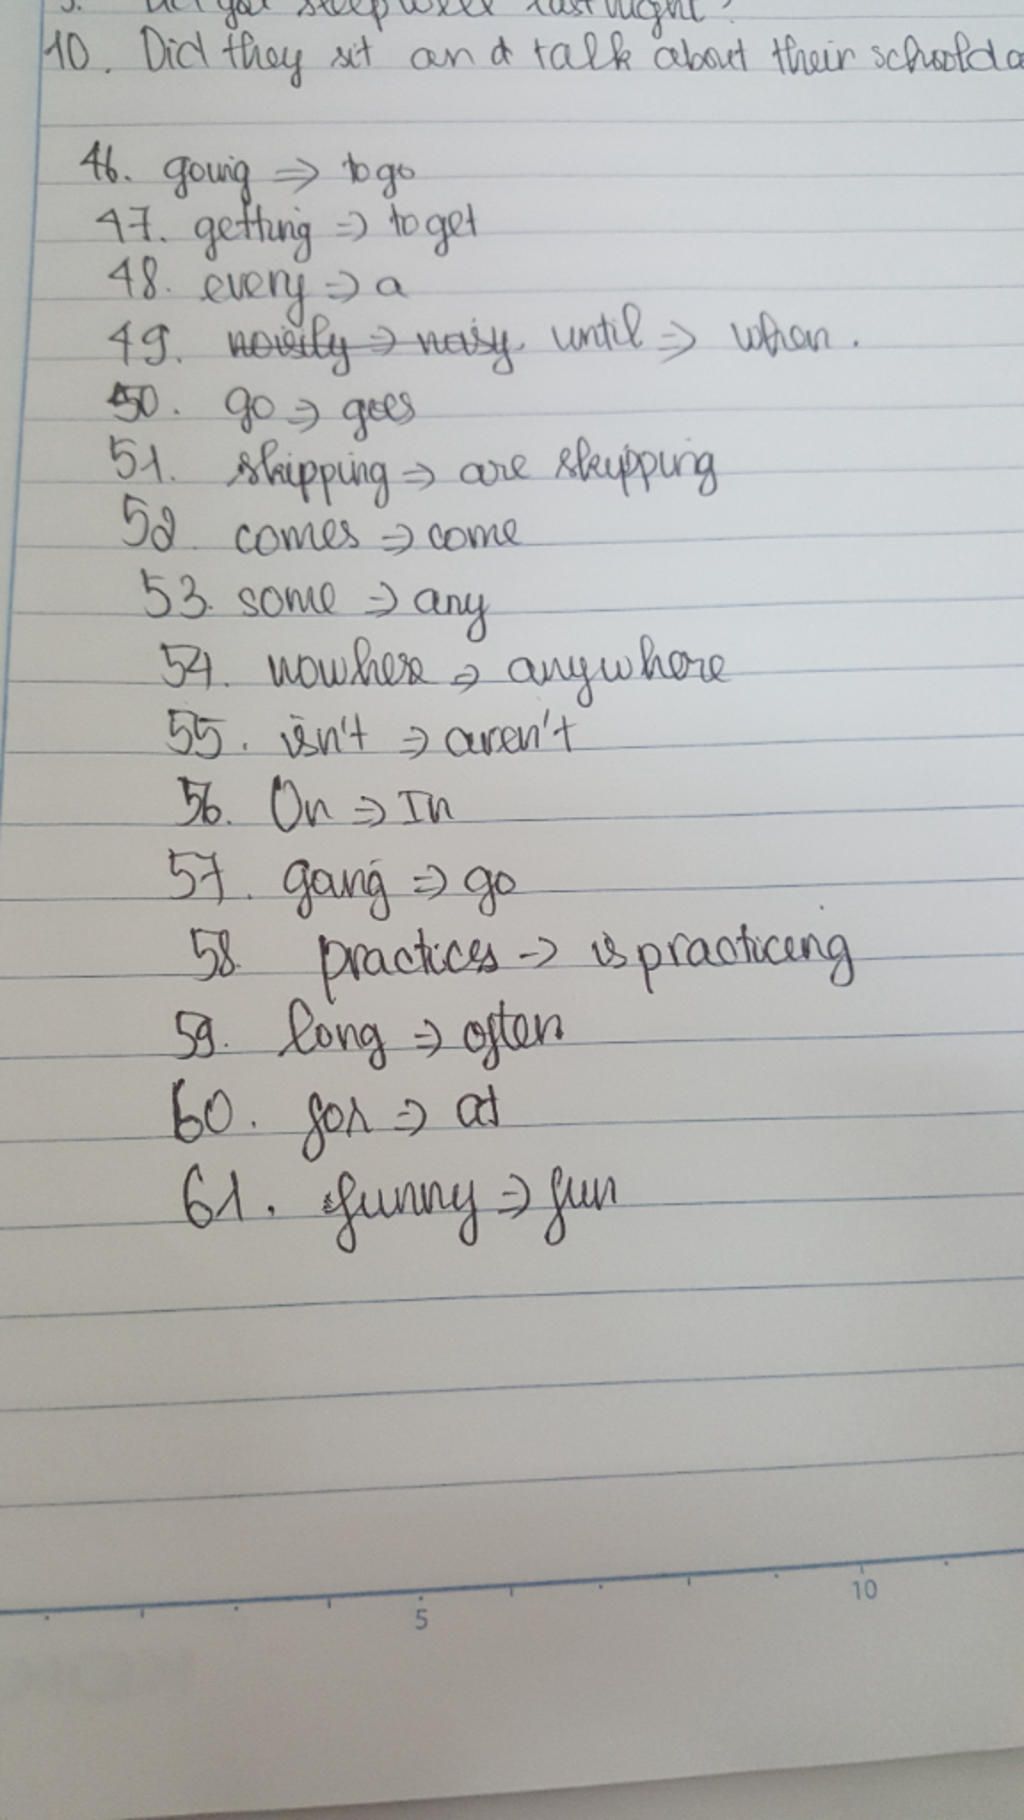 Did you sleep well last night?
10. Did they sit and talk about their schoolda
46. going => to go
47. getting => to get
48. every => a
49. noisily => noisy. until => when.
50. go => goes
51. skipping => are skipping
52 comes => come
53. some => any
54. nowhere => anywhere
55. isn't => aren't
56. On => In
57. going => go
58. practices -> is practiceng
59. long => often
60. for => at
61. funny => fun
5 10